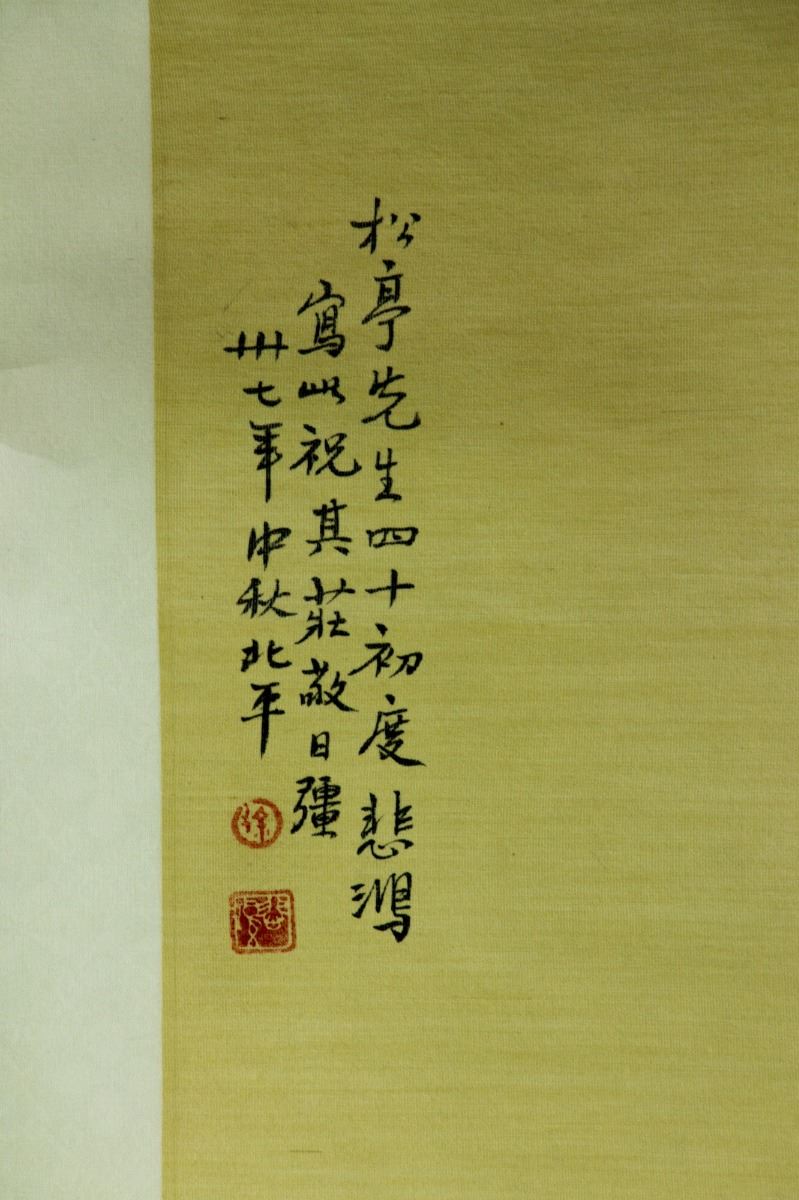 松亭先生四十初度悲鴻
寫此祝其莊敬日彊
卅七年中秋北平
徐